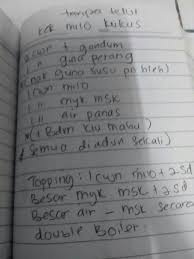 tanpa telur
kek milo kukus
1 cwn t. gandum
1.. gula perang
(nak guna susu pn bleh)
1 cwn milo
1.. myk msk
1.. air panas
(+ Bdm klu mahu)
* semua diadun sekali
Topping: 1 cwn milo + 2 sd
Besar myk. msk + 2 sd
Besar air - msk secara
double Boiler.